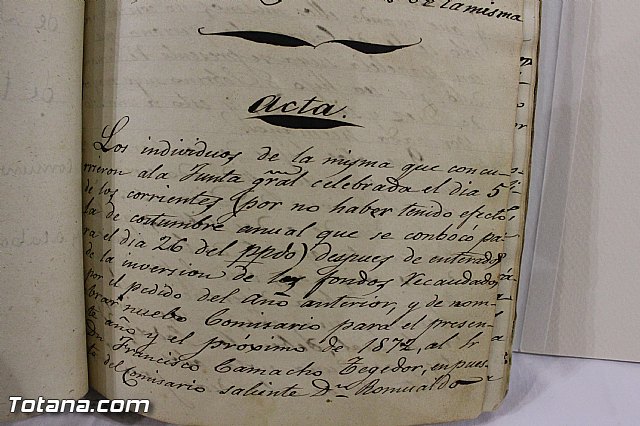 de la misma
Acta.
Los individuos de la misma que concu-
rrieron ala Junta gral celebrada el dia 5
de los corrientes (por no haber tenido efecto
la de costumbre anual que se conbocó pa-
ra el dia 26 del ppdo) despues de enterados
de la inversion de los fondos recaudados
por el pedido del año anterior, y de nom-
brar nuebo Comisario para el presen-
te año y el próximo de 1872, al Sr
Dn Francisco Camacho Tegedor, en pues-
to del Comisario saliente Dn Romualdo
Totana.com